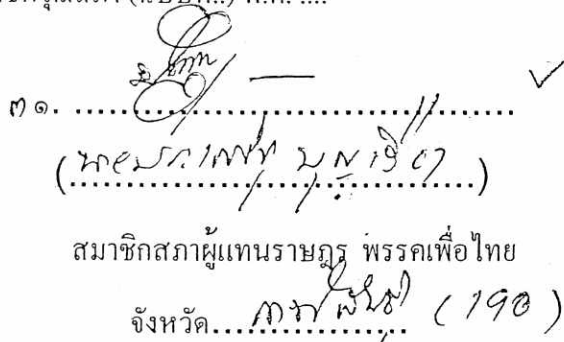 (ฉบับที่..) พ.ศ. ....
๓๑. ........................................
(นายประเสริฐ บุญเรือง)
สมาชิกสภาผู้แทนราษฎร พรรคเพื่อไทย
จังหวัด กาฬสินธุ์ (190)